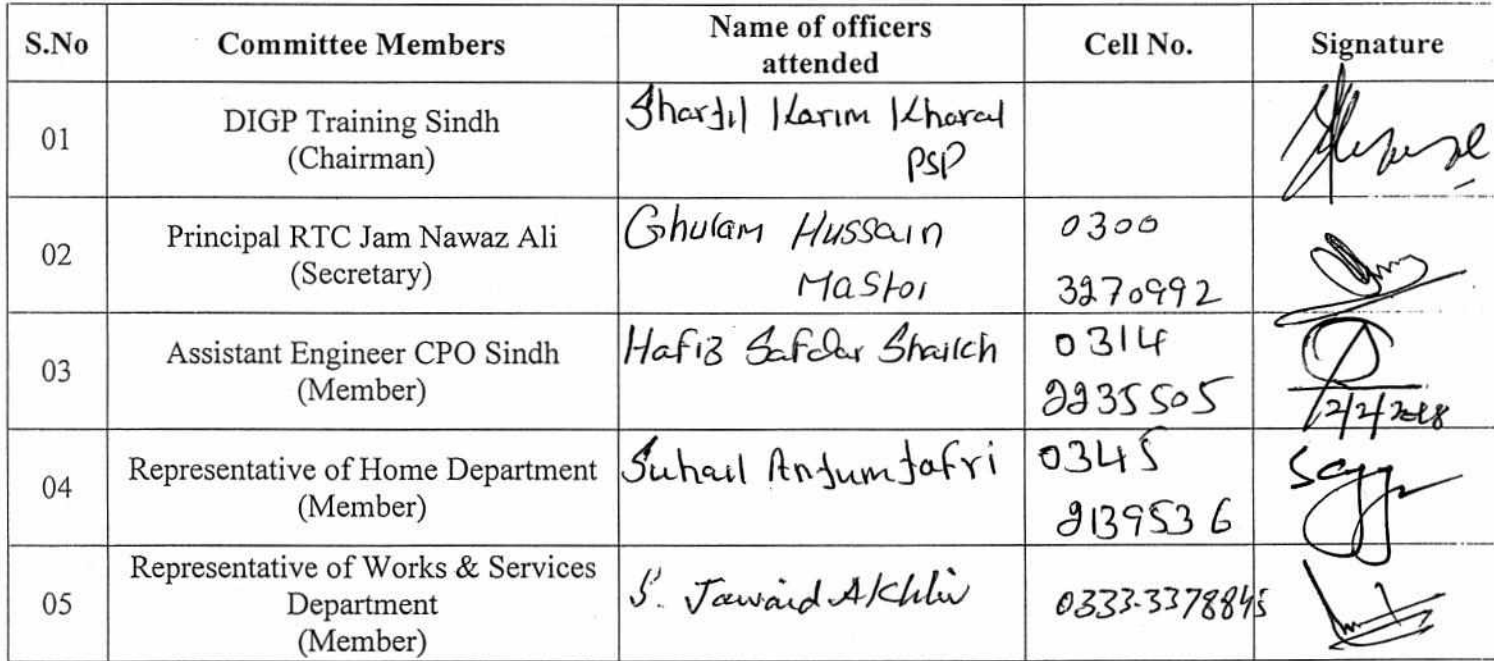 S.No Committee Members Name of officers attended Cell No. Signature
01 DIGP Training Sindh (Chairman) Sharjil Karim Kharal PSP
02 Principal RTC Jam Nawaz Ali (Secretary) Ghulam Hussain Mastoi 0300 3270992
03 Assistant Engineer CPO Sindh (Member) Hafiz Safdar Shaikh 0314 2235505
04 Representative of Home Department (Member) Suhail Anjum Jafri 0345 2139536
05 Representative of Works & Services Department (Member) S. Jawaid 0333-3378845